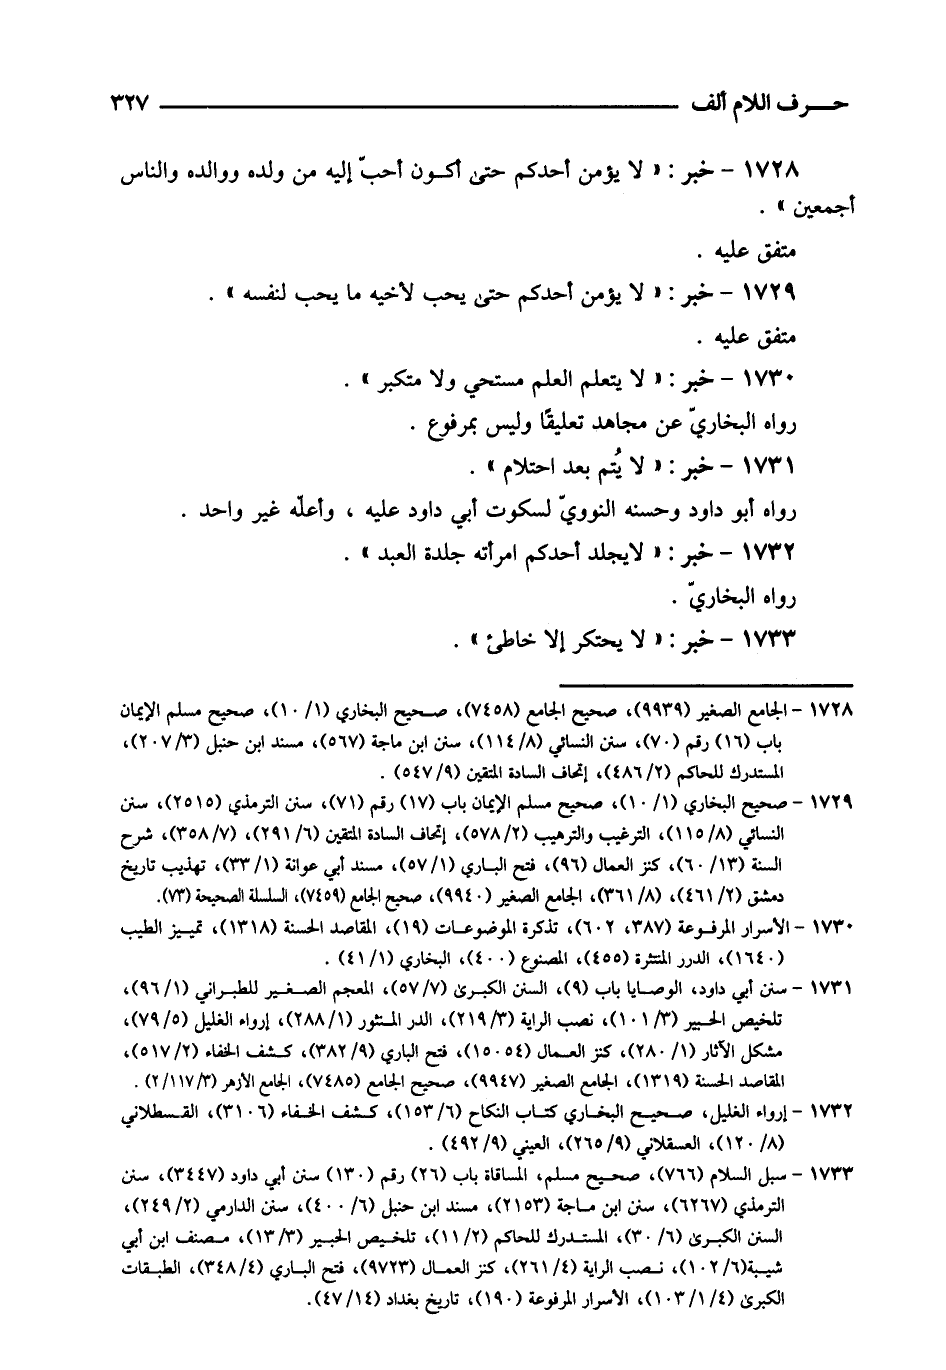 حـــرف اللام ألف ــــــــــــــــــــــــ ٣٢٧
١٧٢٨ - خبر : « لا يؤمن أحدكم حتى أكـون أحبّ إليه من ولده ووالده والناس
أجمعين » .
متفق عليه .
١٧٢٩ - خبر : « لا يؤمن أحدكم حتى يحب لأخيه ما يحب لنفسه » .
متفق عليه .
١٧٣٠ - خبر : « لا يتعلم العلم مستحي ولا متكبر » .
رواه البخاريّ عن مجاهد تعليقًا وليس بمرفوع .
١٧٣١ - خبر : « لا يُتم بعد احتلام » .
رواه أبو داود وحسنه النوويّ لسكوت أبي داود عليه ، وأعلّه غير واحد .
١٧٣٢ - خبر : « لايجلد أحدكم امرأته جلدة العبد » .
رواه البخاريّ .
١٧٣٣ - خبر : « لا يحتكر إلا خاطئ » .
١٧٢٨ - الجامع الصغير (٩٩٣٩)، صحيح الجامع (٧٤٥٨)، صـحيح البخاري (١/ ١٠)، صحيح مسلم الإيمان
باب (١٦) رقم (٧٠)، سنن النسائي (٨/ ١١٤)، سنن ابن ماجة (٥٦٧)، مسند ابن حنبل (٣/ ٢٠٧)،
المستدرك للحاكم (٢/ ٤٨٦)، إتحاف السادة المتقين (٩/ ٥٤٧) .
١٧٢٩ - صحيح البخاري (١/ ١٠)، صحيح مسلم الإيمان باب (١٧) رقم (٧١)، سنن الترمذي (٢٥١٥)، سنن
النسائي (٨/ ١١٥)، الترغيب والترهيب (٢/ ٥٧٨)، إتحاف السادة المتقين (٦/ ٢٩١)، (٧/ ٣٥٨)، شرح
السنة (١٣/ ٦٠)، كنز العمال (٩٦)، فتح البـاري (١/ ٥٧)، مسند أبي عوانة (١/ ٣٣)، تهذيب تاريخ
دمشق (٢/ ٤٦١)، (٨/ ٣٦١)، الجامع الصغير (٩٩٤٠)، صحيح الجامع (٧٤٥٩)، السلسلة الصحيحة (٧٣).
١٧٣٠ - الأسرار المرفـوعة (٣٨٧، ٦٠٢)، تذكرة الموضوعـات (١٩)، المقاصد الحسنة (١٣١٨)، تمييز الطيب
(١٦٤٠)، الدرر المنتثرة (٤٥٥)، المصنوع (٤٠٠)، البخاري (١/ ٤١) .
١٧٣١ - سنن أبي داود، الوصـايا باب (٩)، السنن الكبـرى (٧/ ٥٧)، المعجم الصـغير للطبـراني (١/ ٩٦)،
تلخيص الحـبير (٣/ ١٠١)، نصب الراية (٣/ ٢١٩)، الدر المـنثور (١/ ٢٨٨)، إرواء الغليل (٥/ ٧٩)،
مشكل الآثار (١/ ٢٨٠)، كنز العـمال (١٥٠٥٤)، فتح الباري (٩/ ٣٨٢)، كـشف الخفاء (٢/ ٥١٧)،
المقاصد الحسنة (١٣١٩)، الجامع الصغير (٩٩٤٧)، صحيح الجامع (٧٤٨٥)، الجامع الأزهر (٣/ ١١٧/ ٢) .
١٧٣٢ - إرواء الغليل، صـحيـح البخـاري كتـاب النكاح (٦/ ١٥٣)، كـشف الخـفاء (٣١٠٦)، القـسطلاني
(٨/ ١٢٠)، العسقلاني (٩/ ٢٦٥)، العيني (٩/ ٤٩٢) .
١٧٣٣ - سبل السلام (٧٦٦)، صحـيح مسلم، المساقاة باب (٢٦) رقم (١٣٠) سنن أبي داود (٣٤٤٧)، سنن
الترمذي (٦٢٦٧)، سنن ابن مـاجة (٢١٥٣)، مسند ابن حنبل (٦/ ٤٠٠)، سنن الدارمي (٢/ ٢٤٩)،
السنن الكبـرى (٦/ ٣٠)، المستـدرك للحاكم (٢/ ١١)، تلخـيص الحبير (٣/ ١٣)، مـصنف ابن أبي
شيـبة(٦/ ١٠٢)، نـصب الراية (٤/ ٢٦١)، كنز العمـال (٩٧٢٣)، فتح البـاري (٤/ ٣٤٨)، الطبـقات
الكبرى (٤/ ١/ ١٠٣)، الأسرار المرفوعة (١٩٠)، تاريخ بغداد (١٤/ ٤٧).